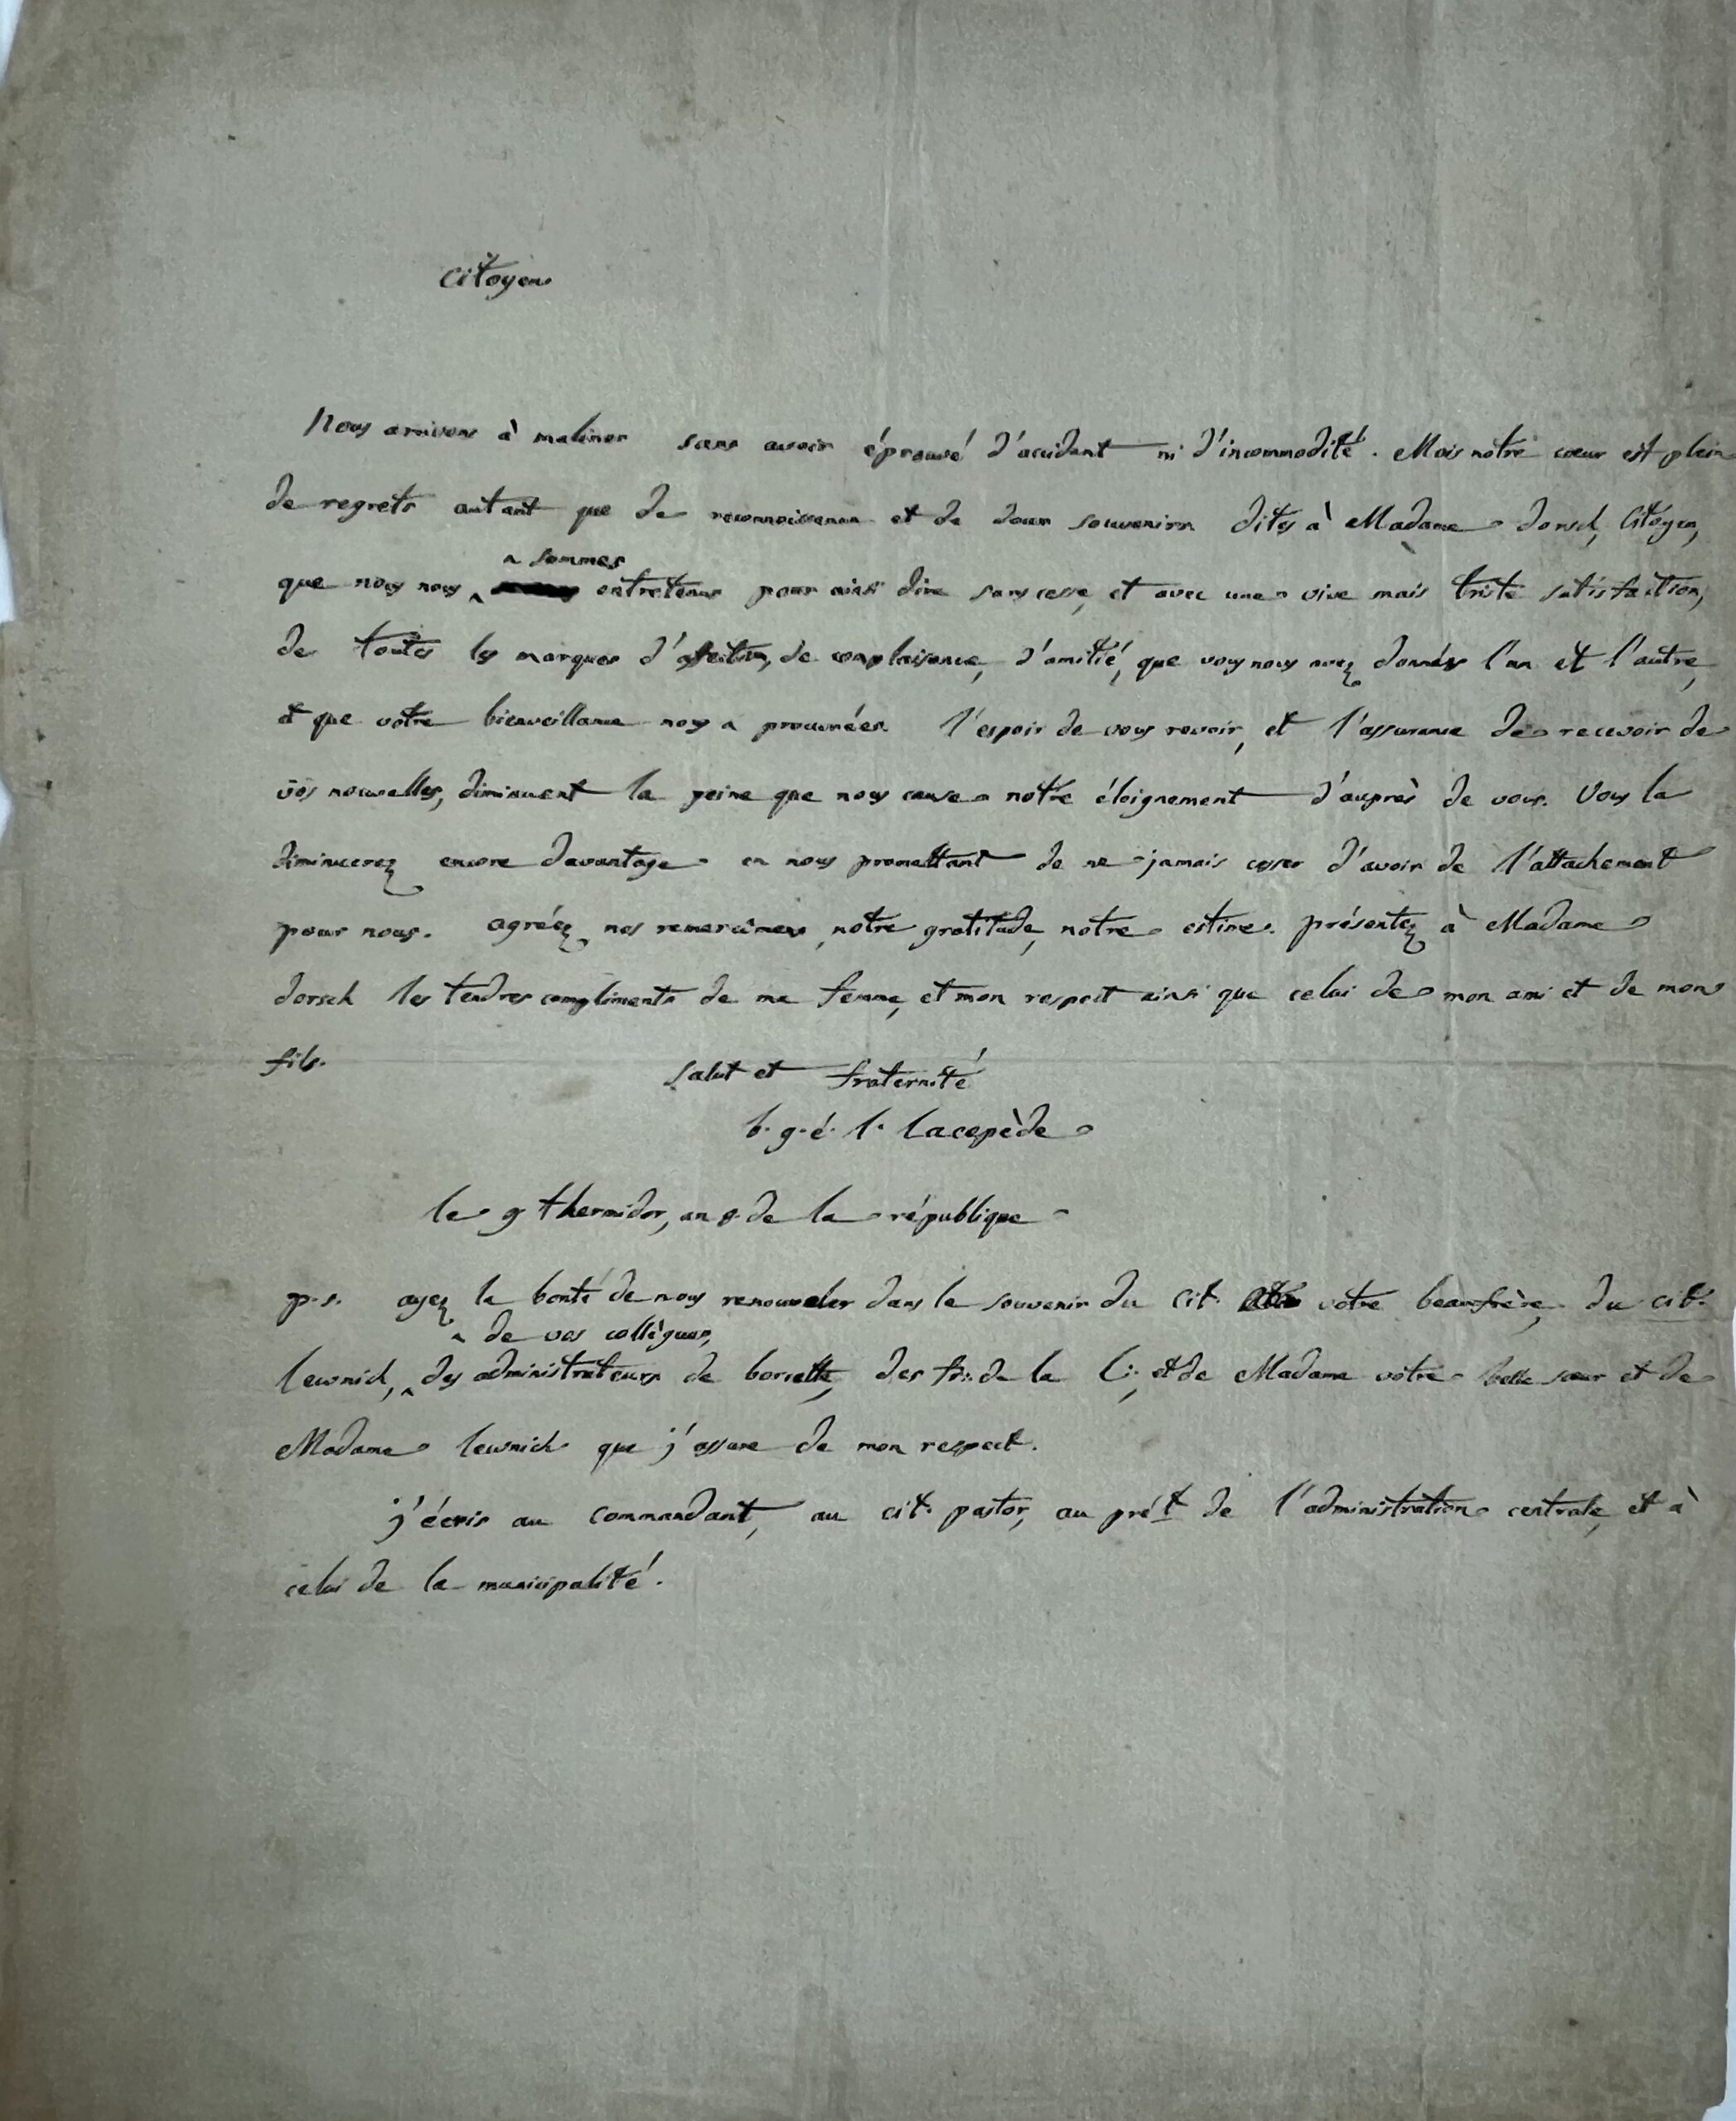 Citoyen
Nous arrivons à malines sans avoir éprouvé d'accident ni d'incommodité. Mais notre cœur est plein
de regrets autant que de reconnoissance et de doux souvenirs dites à Madame dorsch, Citoyen,
^ sommes
que nous nous ^ entretenus pour ainsi dire sans cesse, et avec une vive mais triste satisfaction,
de toutes les marques d'affection, de complaisance, d'amitié, que vous nous avez données l'un et l'autre,
et que votre bienveillance nous a procurées. l'espoir de vous revoir, et l'assurance de recevoir de
vos nouvelles, diminuent la peine que nous cause notre éloignement d'auprès de vous. Vous la
diminuerez encore davantage en nous promettant de ne jamais cesser d'avoir de l'attachement
pour nous. agréez nos remercimens, notre gratitude, notre estime. présentez à Madame
dorsch les tendres compliments de ma femme, et mon respect ainsi que celui de mon ami et de mon
fils.
Salut et fraternité
b. g. é. l. Lacepède
le 9 thermidor, an de la république
p.s. ayez la bonté de nous renouveler dans le souvenir du cit. votre beaufrère, du cit.
^ de vos collègues,
lewnich, ^ des administrateurs de borcette, des fr∴ de la L∴, et de Madame votre belle sœur et de
Madame lewnich que j'assure de mon respect.
j'écris au commandant, au cit. pastor, au prét de l'administration centrale, et à
celui de la municipalité.